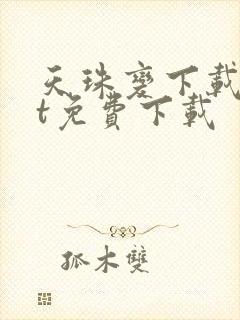 天珠變下載
t免費下載
孤木雙